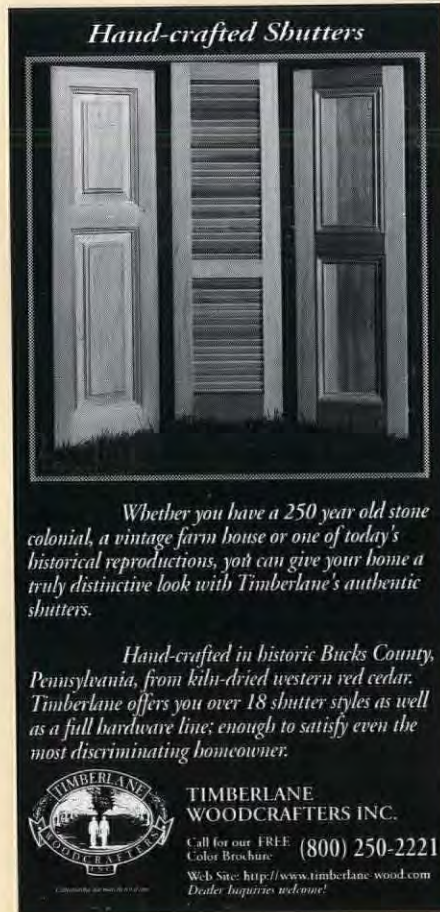 Hand-crafted Shutters
Whether you have a 250 year old stone
colonial, a vintage farm house or one of today's
historical reproductions, you can give your home a
truly distinctive look with Timberlane's authentic
shutters.
Hand-crafted in historic Bucks County,
Pennsylvania, from kiln-dried western red cedar.
Timberlane offers you over 18 shutter styles as well
as a full hardware line; enough to satisfy even the
most discriminating homeowner.
TIMBERLANE
WOODCRAFTERS
INC.
TIMBERLANE
WOODCRAFTERS INC.
Call for our FREE
Color Brochure
(800) 250-2221
Web Site: http://www.timberlane-wood.com
Dealer Inquiries welcome!